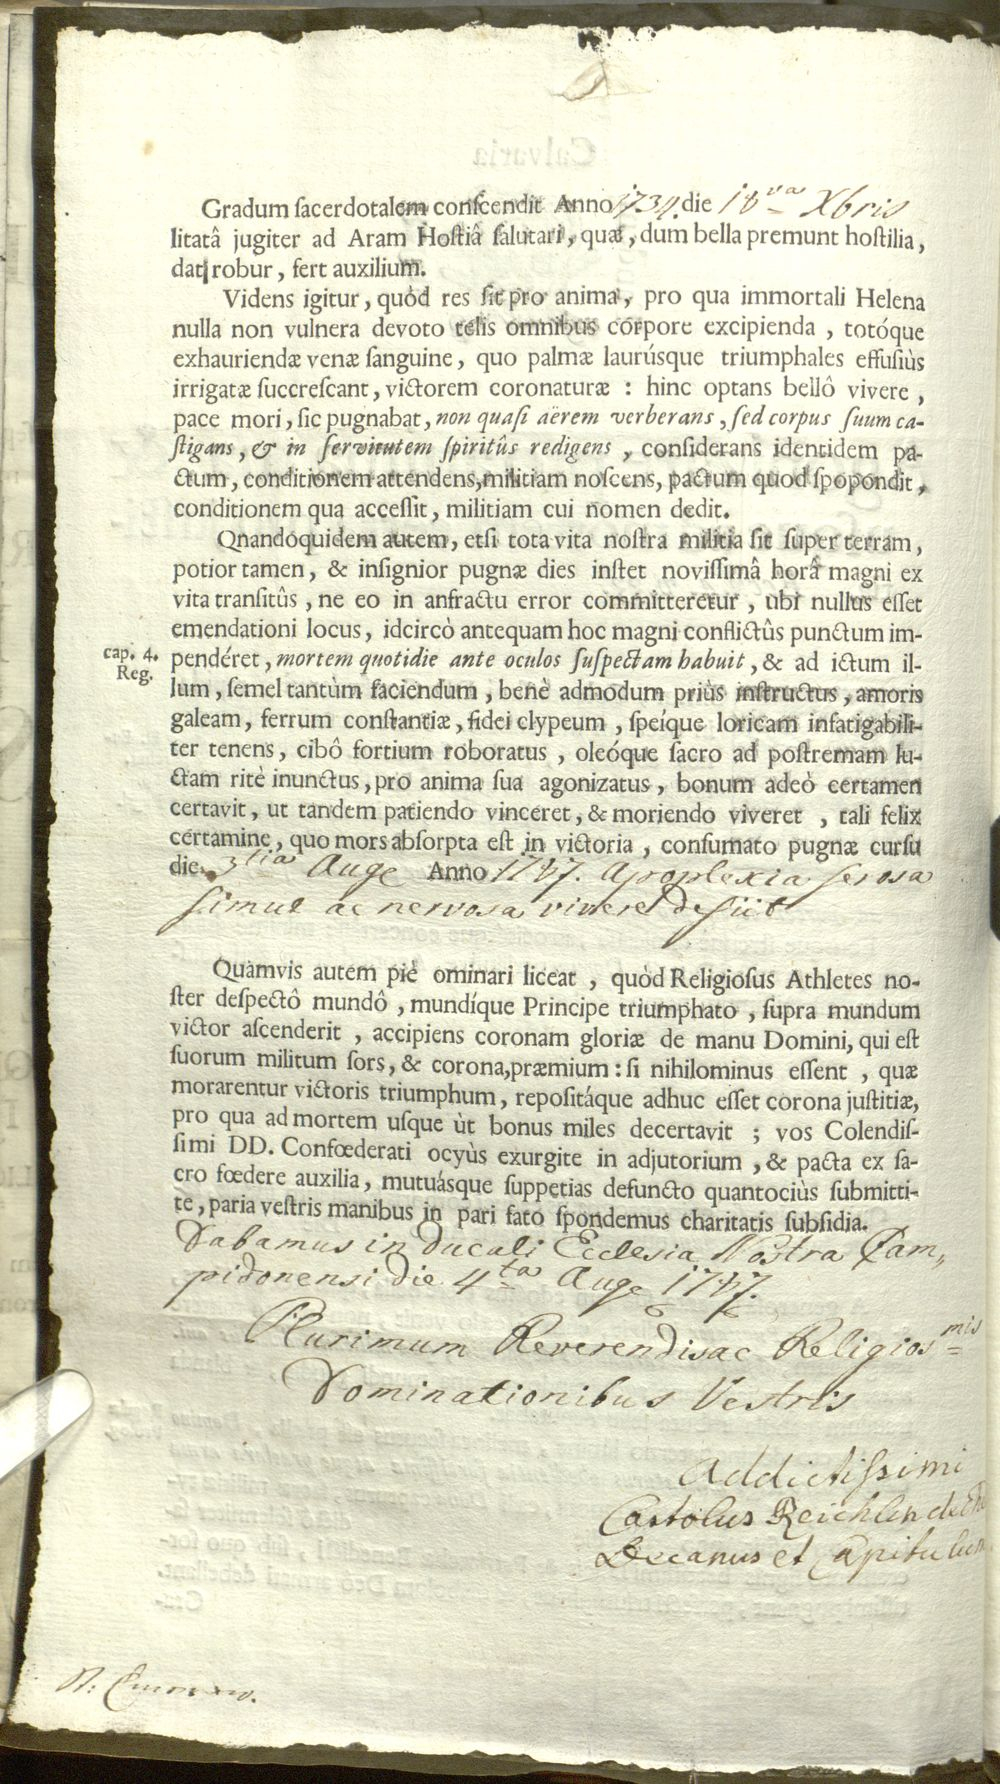 Gradum ſacerdotalem conſcendit Anno 1734. die 18va Xbris
litatâ jugiter ad Aram Hoſtiâ ſalutari, quæ, dum bella premunt hoſtilia,
dat robur, fert auxilium.
Videns igitur, quòd res ſit pro anima, pro qua immortali Helena
nulla non vulnera devoto telis omnibus corpore excipienda, totóque
exhauriendæ venæ ſanguine, quo palmæ laurúsque triumphales effuſiùs
irrigatæ ſuccreſcant, victorem coronaturæ : hinc optans bellô vivere,
pace mori, ſic pugnabat, non quaſi aërem verberans, ſed corpus ſuum ca-
ſtigans, & in ſervitutem ſpiritûs redigens, conſiderans identidem pa-
ctum, conditionem attendens, militiam noſcens, pactum quod ſpopondit,
conditionem qua acceſſit, militiam cui nomen dedit.
Qnandoquidem autem, etſi tota vita noſtra militia ſit ſuper terram,
potior tamen, & inſignior pugnæ dies inſtet noviſſimâ horâ magni ex
vita tranſitûs, ne eo in anfractu error committeretur, ubi nullus eſſet
emendationi locus, idcircò antequam hoc magni conflictûs punctum im-
cap. 4. pendéret, mortem quotidie ante oculos ſuſpectam habuit, & ad ictum il-
Reg. lum, ſemel tantùm faciendum, benè admodum priùs inſtructus, amoris
galeam, ferrum conſtantiæ, fidei clypeum, ſpeíque loricam infatigabili-
ter tenens, cibô fortium roboratus, oleóque ſacro ad poſtremam lu-
ctam ritè inunctus, pro anima ſua agonizatus, bonum adeò certamen
certavit, ut tandem patiendo vinceret, & moriendo viveret, tali felix
certamine, quo mors abſorpta eſt in victoria, conſumato pugnæ curſu
die 3tia Augę Anno 1747. Apoplexia ſerosa
ſimul ac nervosa vivere deſiit
Quamvis autem piè ominari liceat, quòd Religioſus Athletes no-
ſter deſpectô mundô, mundíque Principe triumphato, ſupra mundum
victor aſcenderit, accipiens coronam gloriæ de manu Domini, qui eſt
ſuorum militum ſors, & corona, præmium : ſi nihilominus eſſent, quæ
morarentur victoris triumphum, repoſitáque adhuc eſſet corona juſtitiæ,
pro qua ad mortem uſque ùt bonus miles decertavit ; vos Colendiſ-
ſimi DD. Confœderati ocyùs exurgite in adjutorium, & pacta ex ſa-
cro fœdere auxilia, mutuásque ſuppetias defuncto quantociùs ſubmitti-
te, paria veſtris manibus in pari fato ſpondemus charitatis ſubſidia.
Dabamus in Ducali Ecclesia Nostra Cam„
pidonensi die 4ta Augę 1747.
Plurimum Reverendis ac Religiosmis
Dominationibus Vestris
Addictiſsimi
Castolus Reichlin de
Decanus et Capitulum